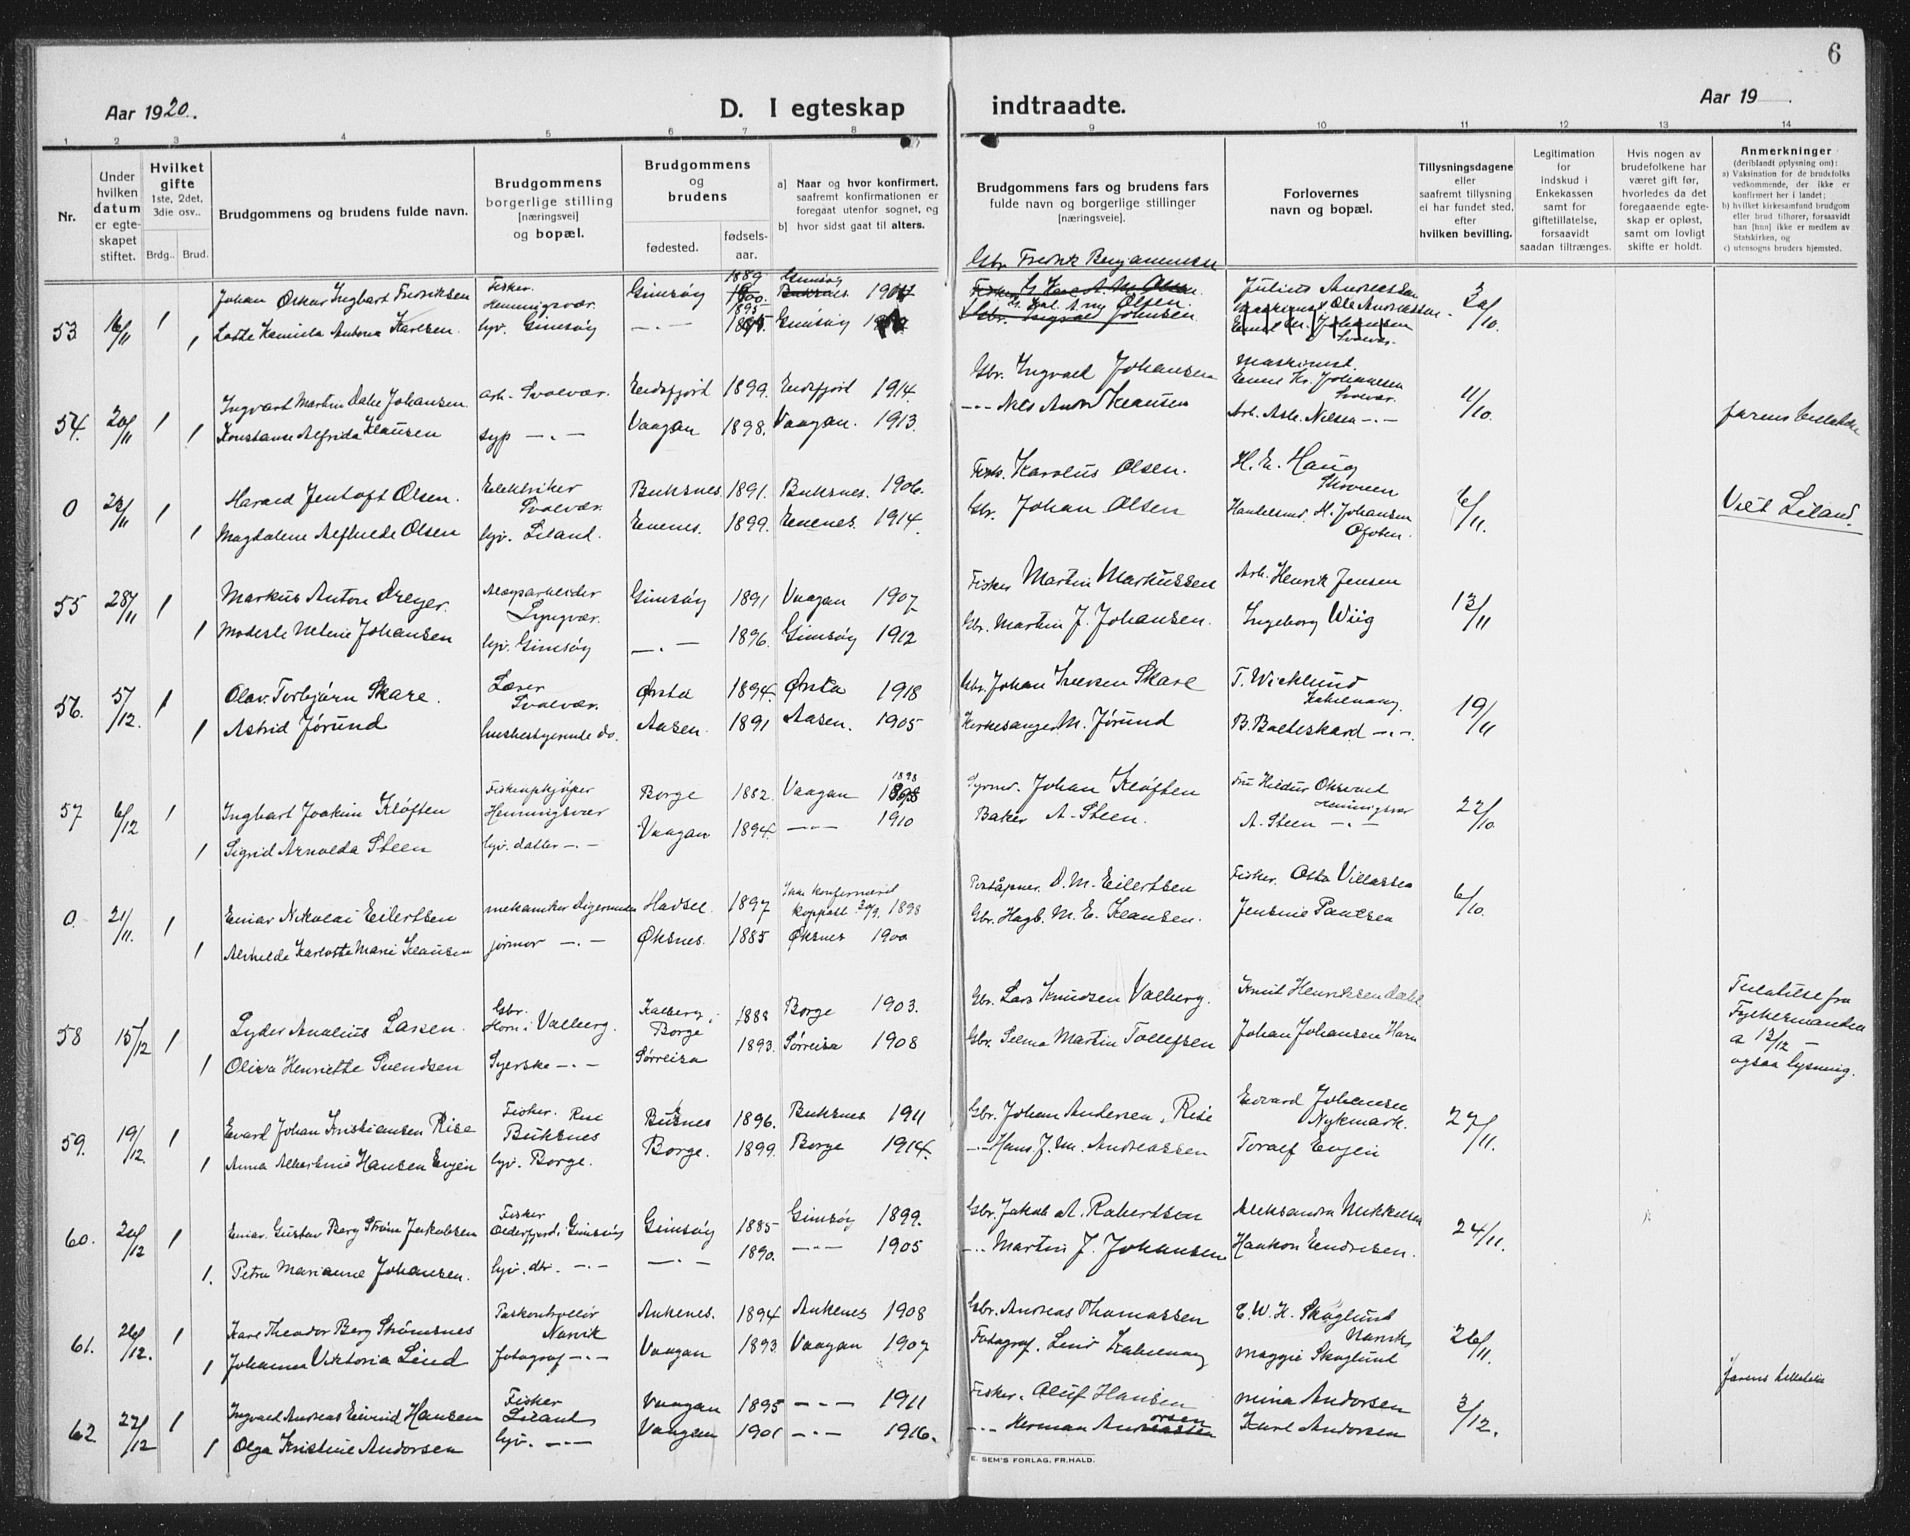 6
Aar 1920.
D. I egteskap indtraadte.
Aar 19 .
1 2 3 4 5 6 7 8 9 10 11 12 13 14
Nr.
Under hvilken datum er egteskapet stiftet.
Hvilket gifte
1ste, 2det, 3die osv..
Brdg.. Brud.
Brudgommens og brudens fulde navn.
Brudgommens borgerlige stilling
[næringsvei]
og bopæl.
Brudgommens og brudens
fødested.
fødselsaar.
a) Naar og hvor konfirmert, saafremt konfirmationen er foregaat utenfor sognet, og
b) hvor sidst gaat til alters.
Brudgommens fars og brudens fars
fulde navn og borgerlige stillinger
[næringsveie].
Forlovernes
navn og bopæl.
Tillysningsdagene
eller
saafremt tillysning
ei har fundet sted,
efter
hvilken bevilling.
Legitimation
for
indskud i
Enkekassen
samt for
giftetillatelse,
forsaavidt
saadan tiltrænges.
Hvis nogen av
brudefolkene har
været gift før,
hvorledes da det
foregaaende egteskap er opløst,
samt om lovligt
skifte er holdt.
Anmerkninger
(deriblandt oplysning om):
a) Vaksination for de brudefolks vedkommende, der ikke er konfirmert her i landet;
b) hvilket kirkesamfund brudgom eller brud tilhører, forsaavidt han [hun] ikke er medlem av Statskirken, og
c) utensogns bruders hjemsted.
53 16/11 1 Johan Oskar Ingbart Fredriksen Fisker Henningsvær Gimsøy 1889 Gimsøy Gbr. Fredrik Benjaminsen Julius Andreassen 30/10
1 Lotte Kamilla Antona Karlsen. lyv. Gimsøy —"— 1895 Gimsøy Olsen. Ole Andreassen
54. 20/11 1 Ingvart Martin Dale Johansen. arb. Svolvær. Eidsfjord 1899. Eidsfjord 1914 Gbr. Ingvald Johansen Maskinist. Emil Kr. Johansen Svolvær. 11/10.
1 Konstanse Alfrida Klausen syp —"— Vaagan 1898. Vaagan. 1913. —"— Nils Klausen Arb. Nilsen —"—
0 28/11 1 Harald Jentoft Olsen. Elektriker Svolvær. Buksnes. 1891. Buksnes. 1906. Fisk. Karolus Olsen. H. E. Haug 6/11. Viet Liland.
1 Magdalene Olsen lyv. Liland. Evenes. 1899. Evenes. 1914. Gbr. Johan Olsen Handelsmd. M. Johansen Ofoten.
55 28/11 1 Markus Anton Dreyer. Lyngvær. Gimsøy 1891 Vaagan 1907 Fisker Martin Markussen Arb. Henrik Jensen 13/11
1 Modeste Helene Johansen lyv. Gimsøy —"— 1896. Gimsøy 1912 Gbr. Martin J. Johansen. Ingeborg Wiig
56. 5/12. 1 Olav Torbjørn Skare. Lærer Svolvær. Ørsta 1894. Ørsta 1918 Gbr. Johan Iversen Skare T. Wicklund Kabelvaag. 19/11
1 Astrid Jørund husbestyrerinde do. Aasen. 1891 Aasen. 1905 Kirkesanger M. Jørund B. Balteskard —"—
57 6/12 1 Ingbart Joakim Kløften Fiskeopkjøper Henningsvær Borge 1882. Vaagan 1898 Johan Kløften Fru Hildur Henningsvær 22/10
1 Sigrid Arnolda Steen lyv. datter —"— Vaagan 1894. —"— 1910 Baker A. Steen. A. Steen —"—
0. 21/11. 1 Einar Nikolai Eilertsen mekaniker Digermulen Hadsel 1897 Ikke konfirmeret koppsatt 30/9. 1898 Postaapner. D. M. Eilertsen Fisker. Otto Villassen 6/10.
1 Alvilde Karlotte Marie Klausen jormor —"— Øksnes. 1885 Øksnes 1900 Gbr. Hagb. M. E. Klausen. Jensine Paulsen
58 15/12 1 Lyder Analius Larsen. Gbr. Horn i Valberg. Valberg, Borge 1888 Borge 1903. Gbr. Lars Knudsen Valberg. Knut Henriksen Dahl Tillatelse fra Fylkesmanden a 13/12 — ogsaa lysning.
1 Oliva Henriette Svendsen Syerske —"— Sørreisa 1893. Sørreisa 1908 Gbr. Selmer Martin Tollefsen Johan Johansen Horn
59. 19/12. 1 Evard Johan Kristiansen Rise Fisker. Rise Buksnes Buksnes 1896. Buksnes 1911 Gbr. Johan Andersen, Rise Edvard Johansen Nykmark. 27/11.
1 Anna Albertine Hansen Evjen lyv. Borge. Borge. 1899. Borge 1914. —"— Hans J. M. Andreassen Toralf Evjen
60. 20/12 1 Einar Gustav Berg Strøm Jakobsen Fisker Olderfjord, Gimsøy Gimsøy 1885 Gimsøy 1899. Gbr. Jakob A. Robertsen Aleksandra Mikkelsen 24/11.
1. Petra Marianne Johansen. lyv. dtr. —"— —"— 1890. —"— 1905 —"— Martin J. Johansen Haakon Endresen.
61. 26/12. 1 Karl Theodor Berg Strømsnes Paskontrollør Narvik Ankenes. 1894 Ankenes 1908 Gbr. Andreas Thomassen C. W. K. Skoglund Narvik 26/11.
1 Johanna Viktoria Lind fotograf —"— Vaagan 1893 Vaagan 1907 Fotograf. Lind Kabelvaag Maggie Skoglund
62 27/12 1 Ingvald Andreas Eivind Hansen Fisker Liland Vaagan 1895 —"— 1911 Fisker. Oluf Hansen Mina Andorsen 3/12.
1 Olga Kristine Andorsen lyv. —"— Vaagan 1901 —"— 1916. —"— Herman Andorsen Karl Andorsen
E. SEM'S FORLAG, FR.HALD.